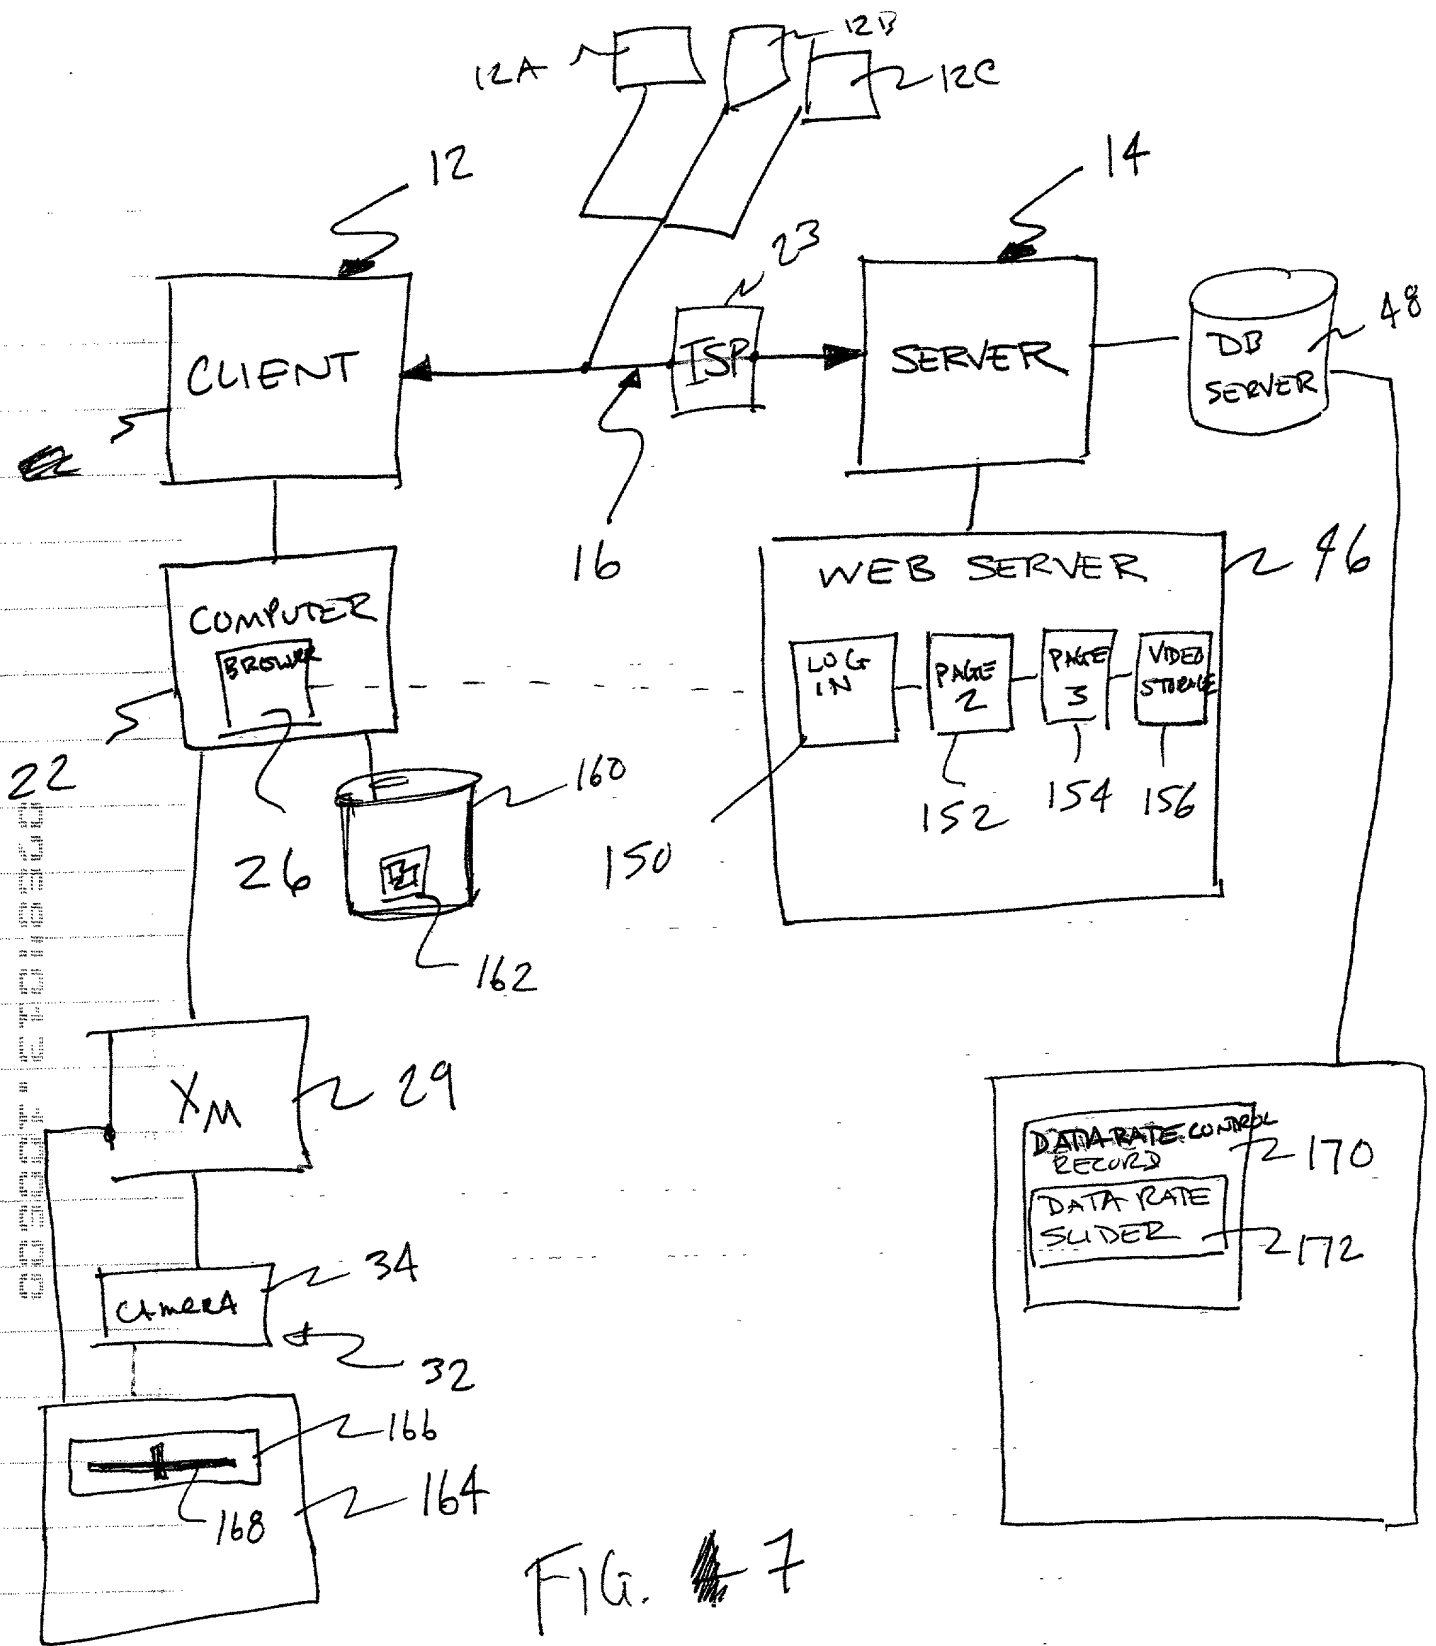 12A
12B
12C
12
14
23
CLIENT
ISP
SERVER
DB
SERVER
48
16
COMPUTER
BROWSER
22
26
160
162
WEB SERVER
46
LOG
IN
PAGE
2
PAGE
3
VIDEO
STORAGE
150
152
154
156
XM
29
CAMERA
34
32
166
164
168
DATA RATE CONTROL
RECORD
170
DATA RATE
SLIDER
172
FIG. 7